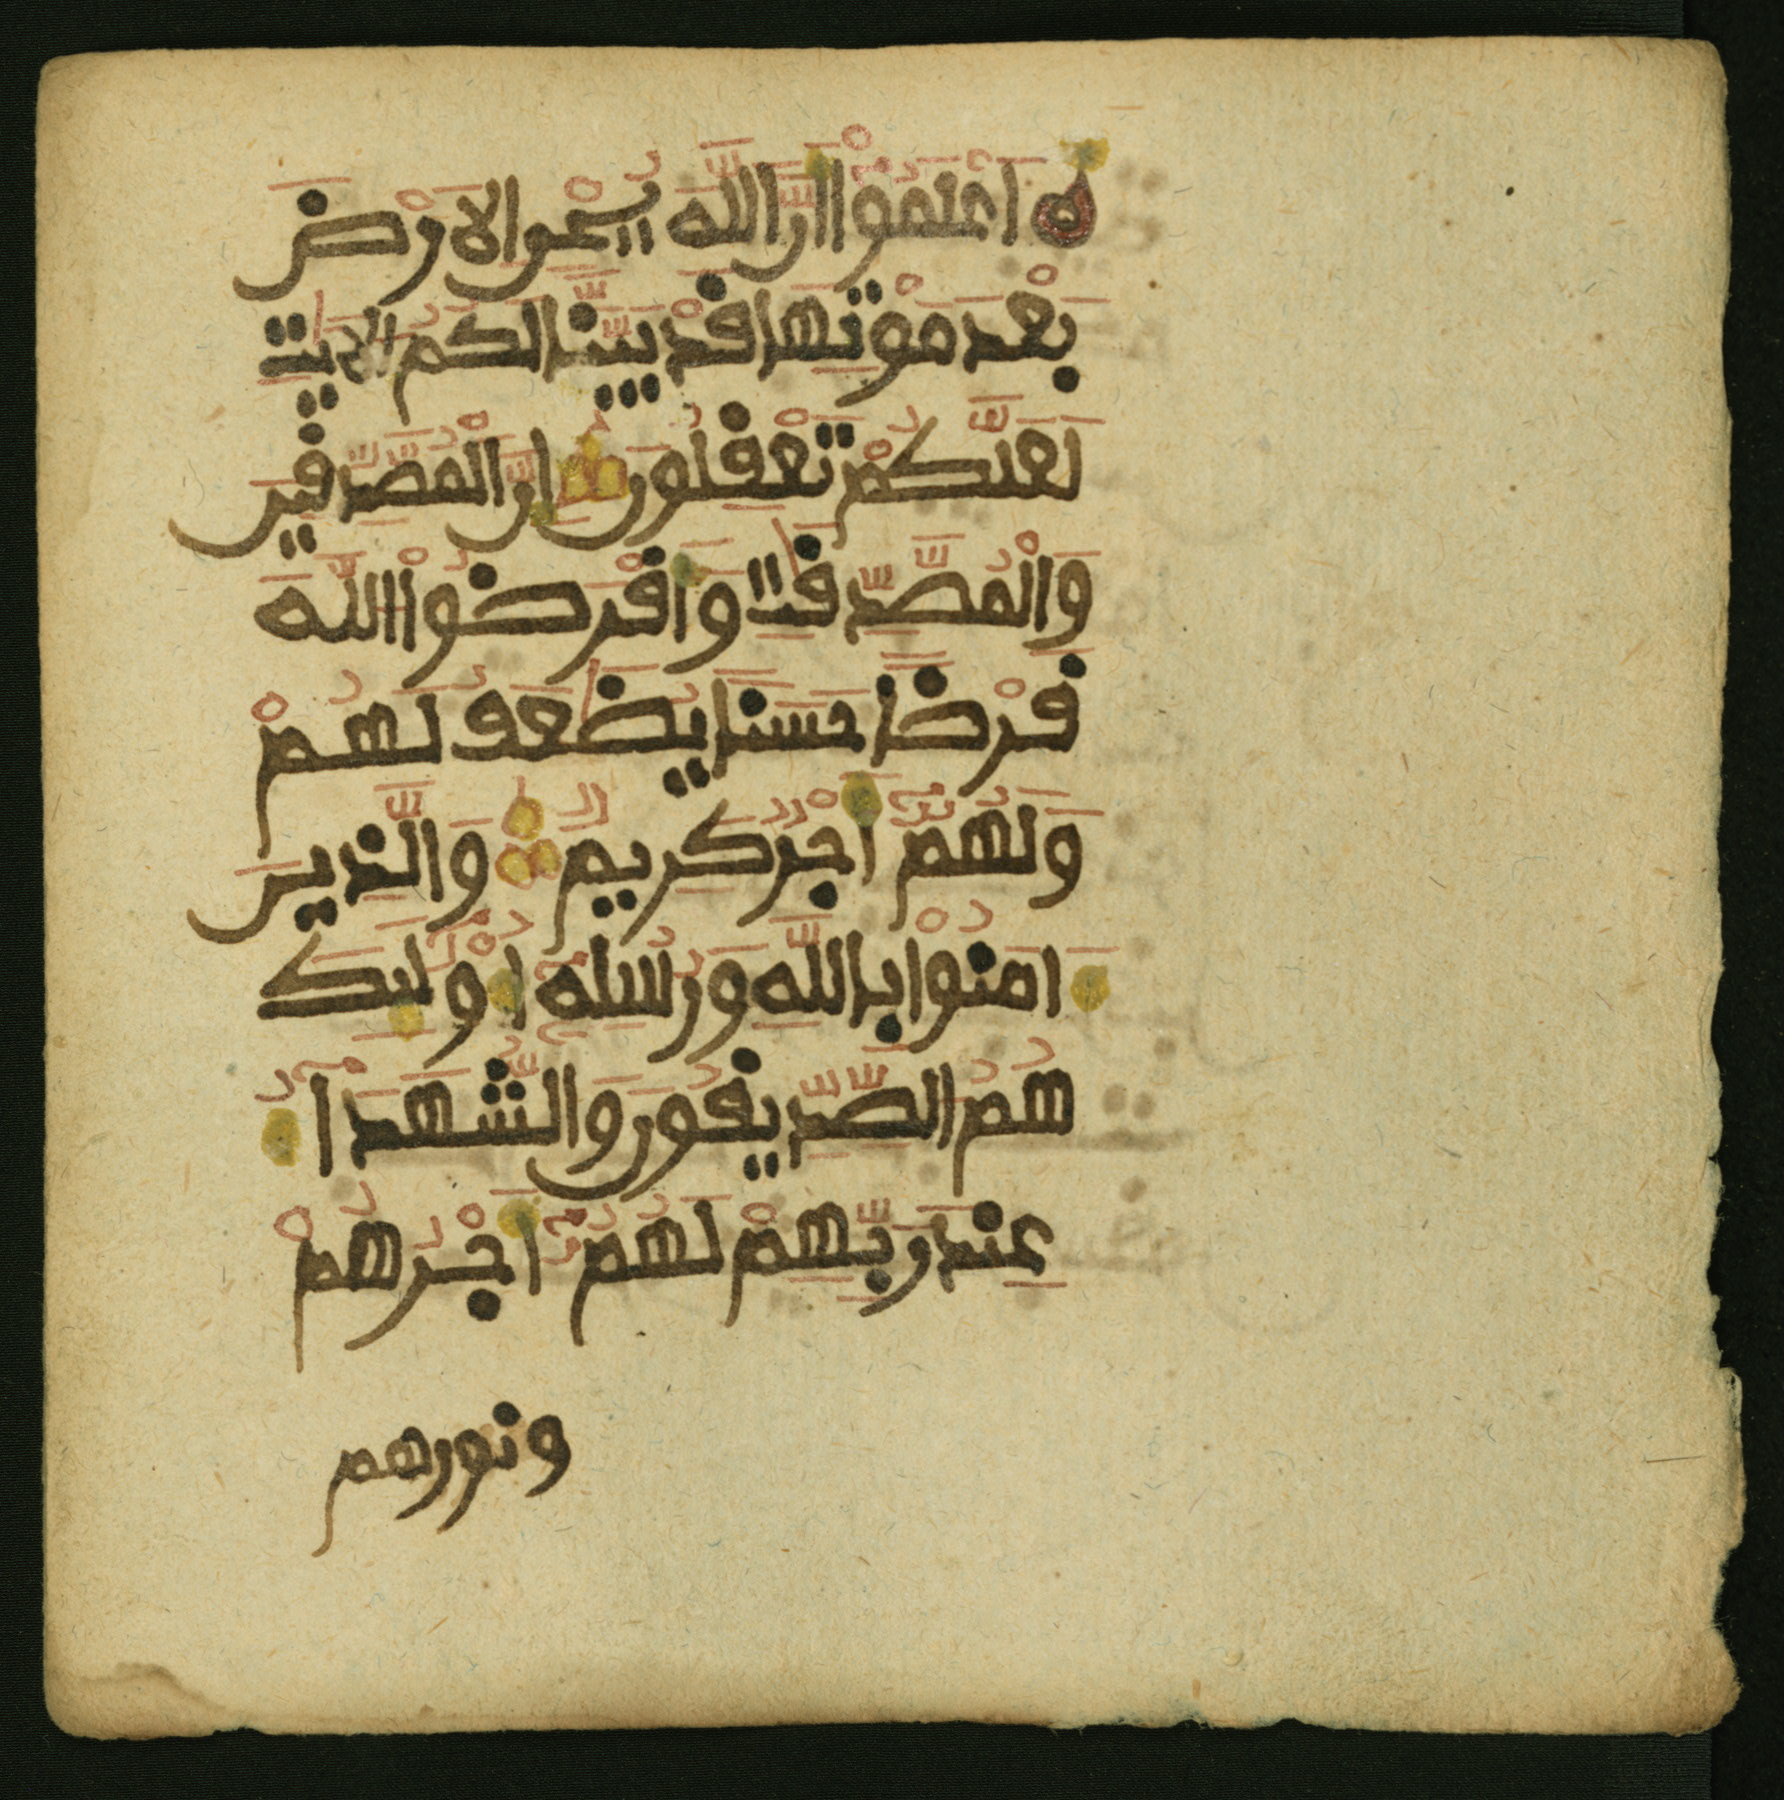 ه اعْلَمُوٓا۟ أَنَّ اللَّهَ يُحْيِ الَارْضَ
بَعْدَ مَوْتِهَا قَدْ بَيَّنَّا لَكُمُ الَايَٰتِ
لَعَلَّكُمْ تَعْقِلُونَ إِنَّ الْمُصَّدِّقِينَ
وَالْمُصَّدِّقَٰتِ وَأَقْرَضُوا۟ اللَّهَ
قَرْضًا حَسَنًا يُضَٰعَفُ لَهُمْ
وَلَهُمُۥٓ أَجْرٌ كَرِيمٌ وَالَّذِينَ
ءَامَنُوا۟ بِاللَّهِ وَرُسُلِهِۦٓ أُو۟لَٰٓئِكَ
هُمُ الصِّدِّيقُونَ وَالشُّهَدَآءُ
عِندَ رَبِّهِمْ لَهُمُۥٓ أَجْرُهُمْ
ونورهم